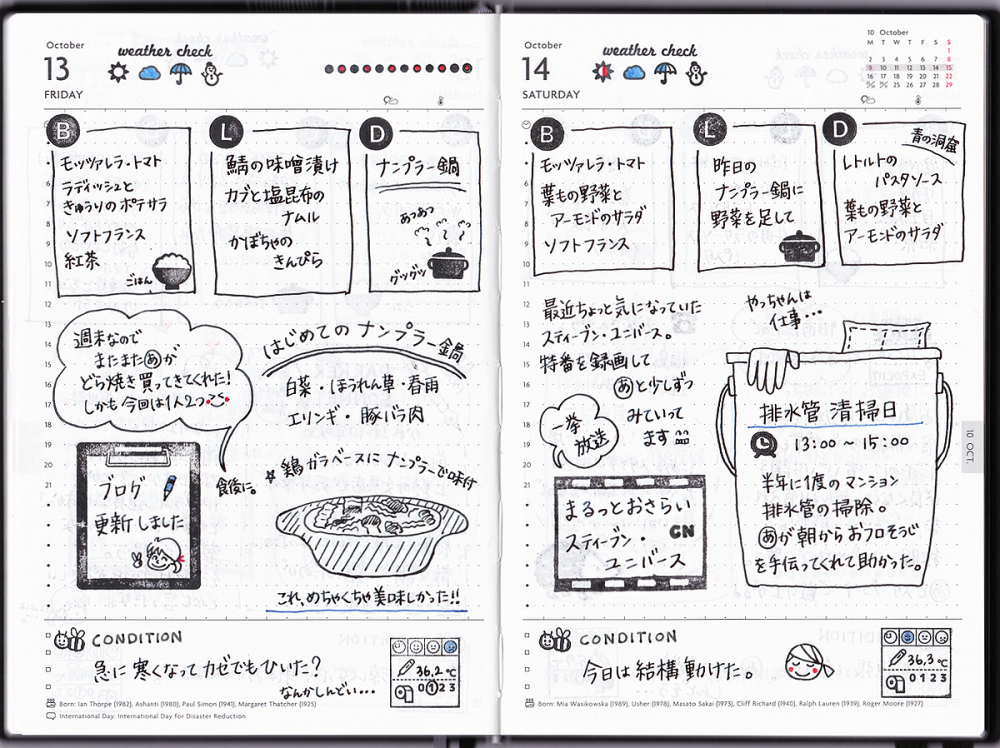 October
13
FRIDAY
weather check
B
モッツァレラ・トマト
ラディッシュと
きゅうりのポテサラ
ソフトフランス
紅茶
ごはん
L
鯖の味噌漬け
カブと塩昆布の
ナムル
かぼちゃの
きんぴら
D
ナンプラー鍋
あつあつ
グツグツ
週末なので
またまたあが
どら焼き買ってきてくれた!
しかも今回は1人2つ
食後に。
はじめてのナンプラー鍋
白菜・ほうれん草・春雨
エリンギ・豚バラ肉
鶏ガラベースにナンプラーで味付
これ、めちゃくちゃ美味しかった!!
ブログ
更新しました
CONDITION
急に寒くなってカゼでもひいた?
なんかしんどい…
36.2℃
0 1 2 3
Born: Ian Thorpe (1982), Ashanti (1980), Paul Simon (1941), Margaret Thatcher (1925)
International Day: International Day for Disaster Reduction
October
14
SATURDAY
weather check
10 October
M T W T F S S
1
2 3 4 5 6 7 8
9 10 11 12 13 14 15
16 17 18 19 20 21 22
29
B
モッツァレラ・トマト
葉もの野菜と
アーモンドのサラダ
ソフトフランス
L
昨日の
ナンプラー鍋に
野菜を足して
D
青の洞窟
レトルトの
パスタソース
葉もの野菜と
アーモンドのサラダ
最近ちょっと気になっていた
スティーブン・ユニバース。
特番を録画して
あと少しずつ
みていって
ます
一挙
放送
まるっとおさらい
CN
スティーブン・
ユニバース
やっちゃんは
仕事…
排水管清掃日
13:00～15:00
半年に1度のマンション
排水管の掃除。
あが朝からおフロそうじ
を手伝ってくれて助かった。
10 OCT.
CONDITION
今日は結構動けた。
36.3℃
0 1 2 3
Born: Mia Wasikowska (1989), Usher (1978), Masato Sakai (1973), Cliff Richard (1940), Ralph Lauren (1939), Roger Moore (1927)